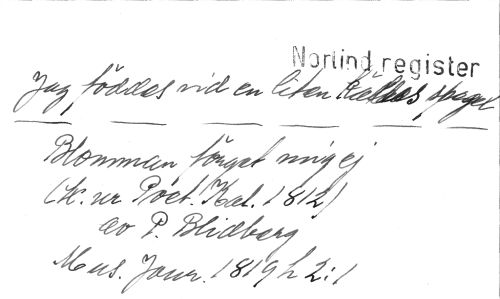 Norlind register
Jag föddes vid en liten källas spegel
Blomman förgät mig ej
(k. ur Poet. Kal. 1812)
av P. Blidberg
Mus. Jour. 1819 h 2:1